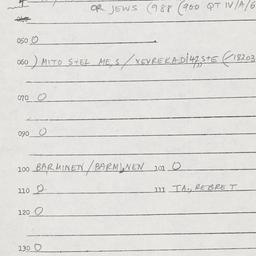 OR JEWS (988 (900 QT IV/A/6
050 0
060 ) MITO STEL ME, S / VEVREKADI
070 0
090 0
100 BARMINEN / BARMINEN 101 0
110 0 111 TA, REBRE T
120 0
130 0